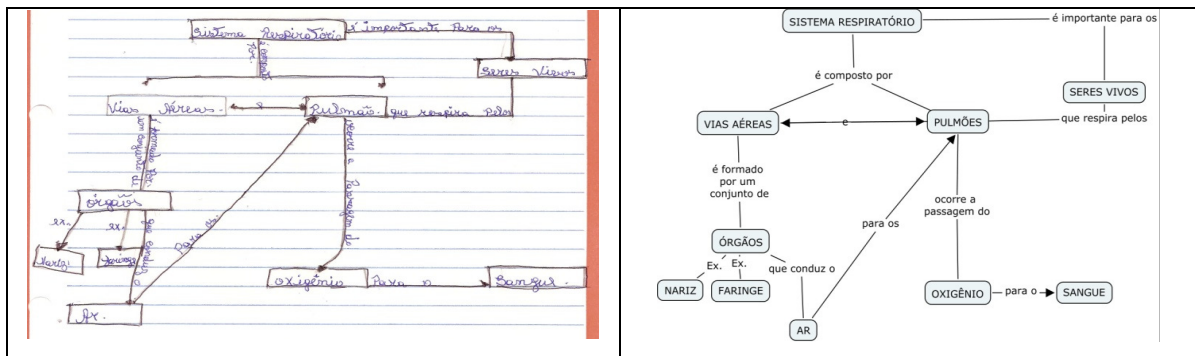 Sistema Respiratório
é importante para os
é composto
Por:
Seres Vivos
Vias Aéreas.
e
Pulmão.
que respira pelos
é formado por:
um conjunto de
ocorre a Passagem do
órgãos
ex.
ex.
que conduz o
Para os.
Nariz.
faringe
oxigênio
Para o
Sangue.
Ar.
SISTEMA RESPIRATÓRIO
é importante para os
é composto por
SERES VIVOS
VIAS AÉREAS
e
PULMÕES
que respira pelos
é formado
por um
conjunto de
ocorre a
passagem do
para os
ÓRGÃOS
Ex.
Ex.
que conduz o
NARIZ
FARINGE
OXIGÊNIO
para o
SANGUE
AR